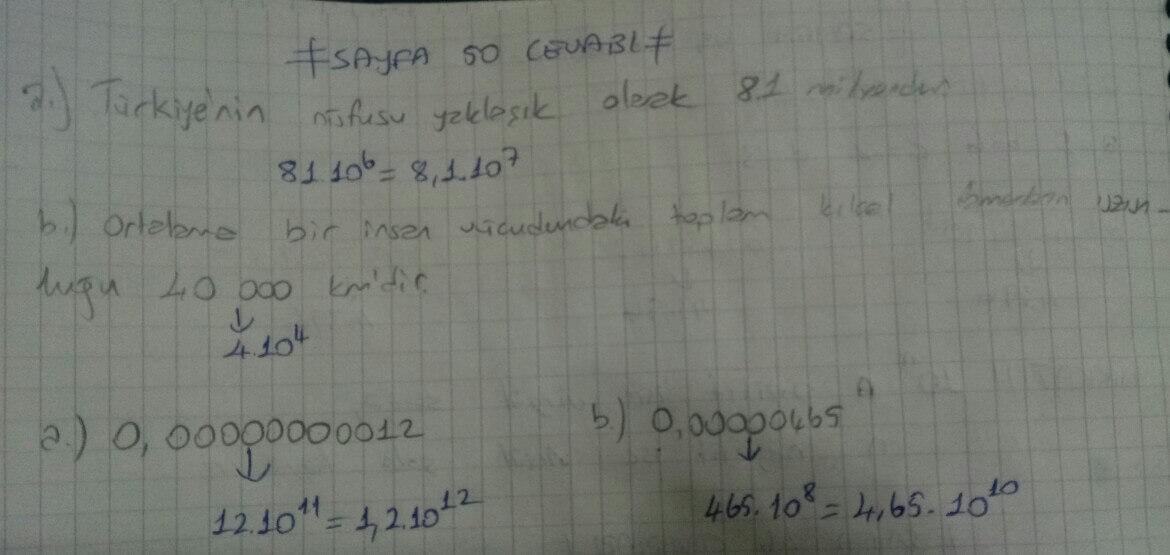 ≠SAYFA 50 CEVABI≠
a.) Türkiye'nin nüfusu yaklaşık olarak 81 milyondur
81.10⁶ = 8,1.10⁷
b.) Ortalama bir insan vücudundaki toplam kılcal damarların uzun-
luğu 40 000 km'dir.
↓
4.10⁴
a.) 0,00000000012 b.) 0,00000465
↓ ↓
12.10¹¹ = 1,2.10¹² 465.10⁸ = 4,65.10¹⁰